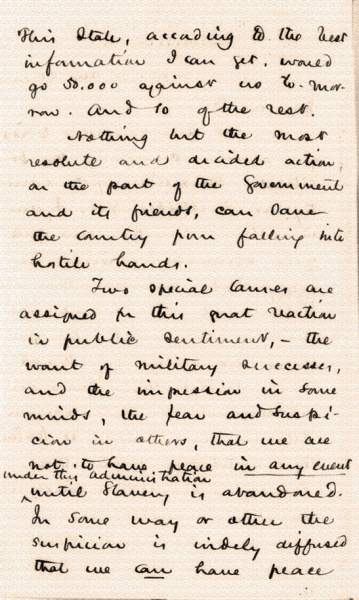 This State, according to the best
information I can get, would
go 50.000 against us to-mor-
row. And so of the rest.
Nothing but the most
resolute and decided action,
on the part of the Government
and its friends, can save
the country from falling into
hostile hands.
Two special causes are
assigned for this great reaction
in public sentiment, – the
want of military successes,
and the impression in some
minds, the fear and suspi-
cion in others, that we are
not to have peace in any event
under this administration
until Slavery is abandoned.
In some way or other the
suspicion is widely diffused
that we can have peace